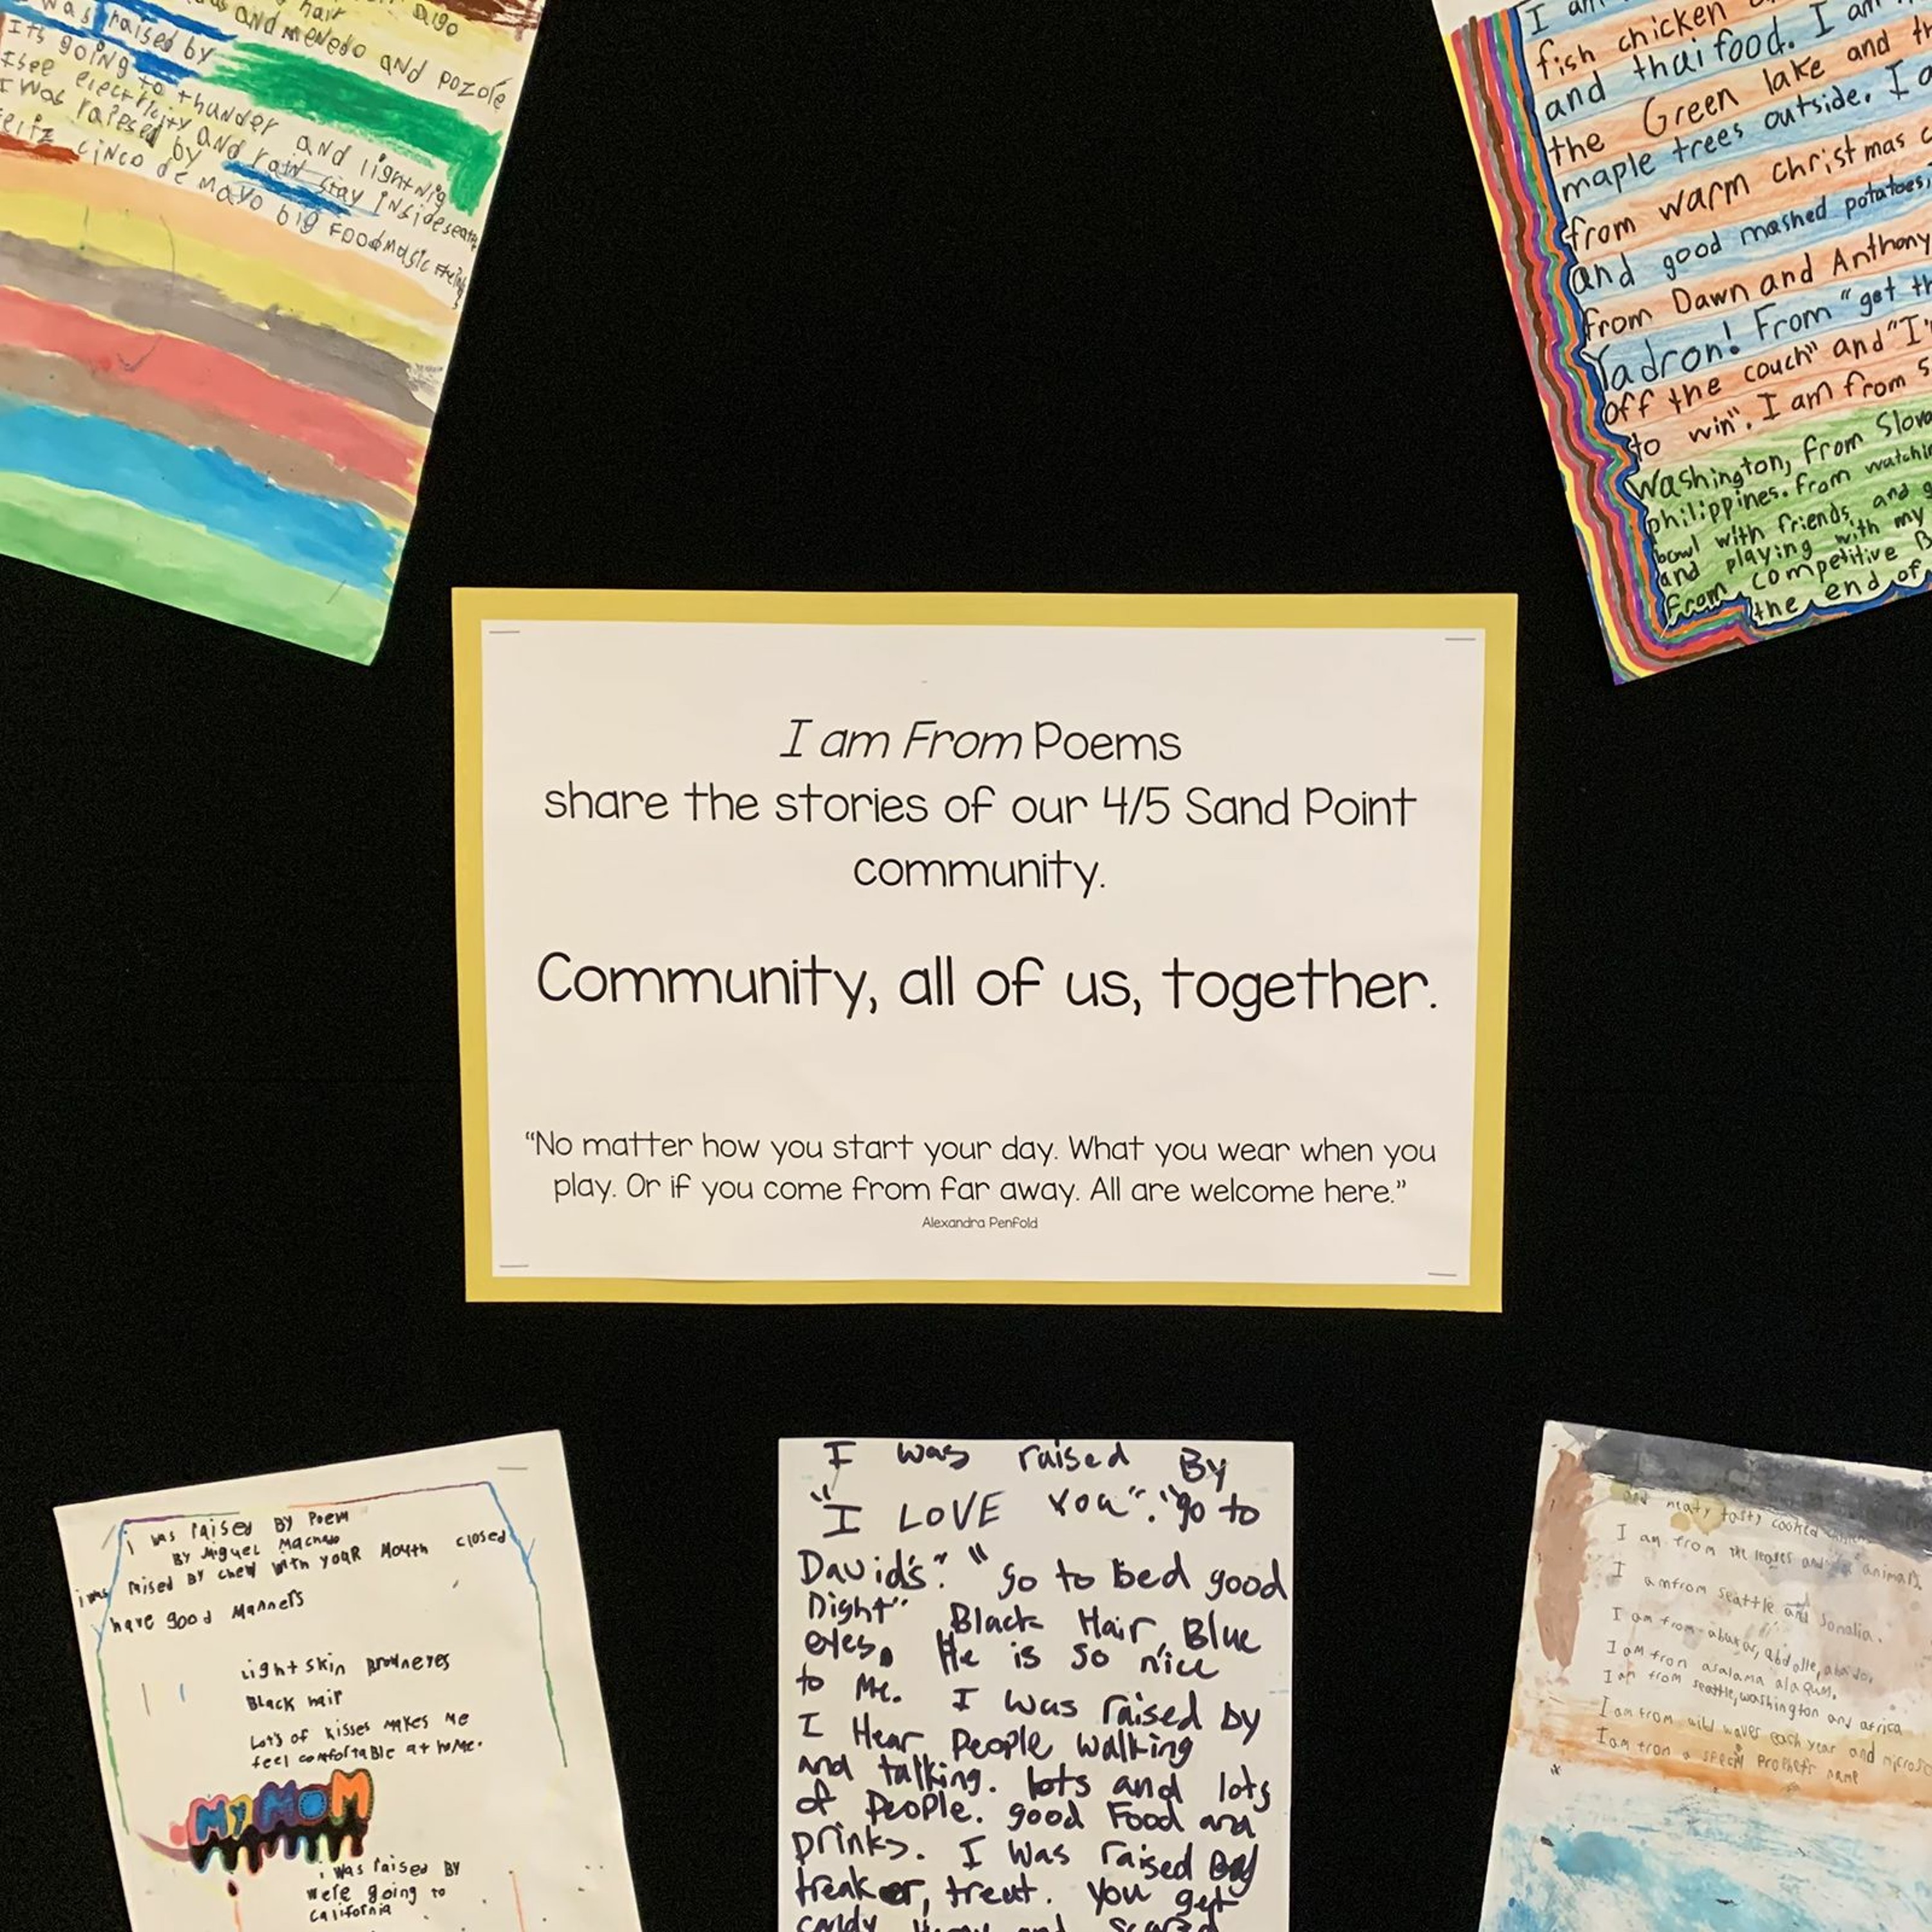 hair
algo
and menedo and pozole
was raised by
Its going to thunder and lightnig
I see electricity and rain stay inside
I was raised by
cinco de mayo big food music
I am
fish chicken
and thai food. I am
the Green lake and
maple trees outside. I
from warm christmas
and good mashed potatoes,
from Dawn and Anthony
Yadron! From "get
off the couch" and "I
to win". I am from
Washington, from
philippines. from
bowl with friends and
and playing with my
From competitive
the end of
I am From Poems
share the stories of our 4/5 Sand Point
community.
Community, all of us, together.
"No matter how you start your day. What you wear when you
play. Or if you come from far away. All are welcome here."
Alexandra Penfold
i was raised BY Poem
BY Miguel
i was raised BY chew with your Mouth closed
have good Manners
Light skin Browneyes
Black hair
Lots of kisses makes me
feel comfortable at home.
My MOM
i was raised BY
were going to
California
I was raised By
"I LOVE You". "go to
David's". "go to bed good
Night" Black Hair, Blue
eyes. He is so nice
to Me. I was raised by
I Hear People walking
and talking. lots and lots
of People. good Food and
Drinks. I was raised By
treak or, treat. You get
candy
and meaty tasty cooked
I am from the leaves and animals.
I am from seattle and Somalia.
I am from abukar, abdalle,
I am from asalama alaqum.
I am from seattle, washington and africa
I am from wild waves each year and
I am from a special Prophets name